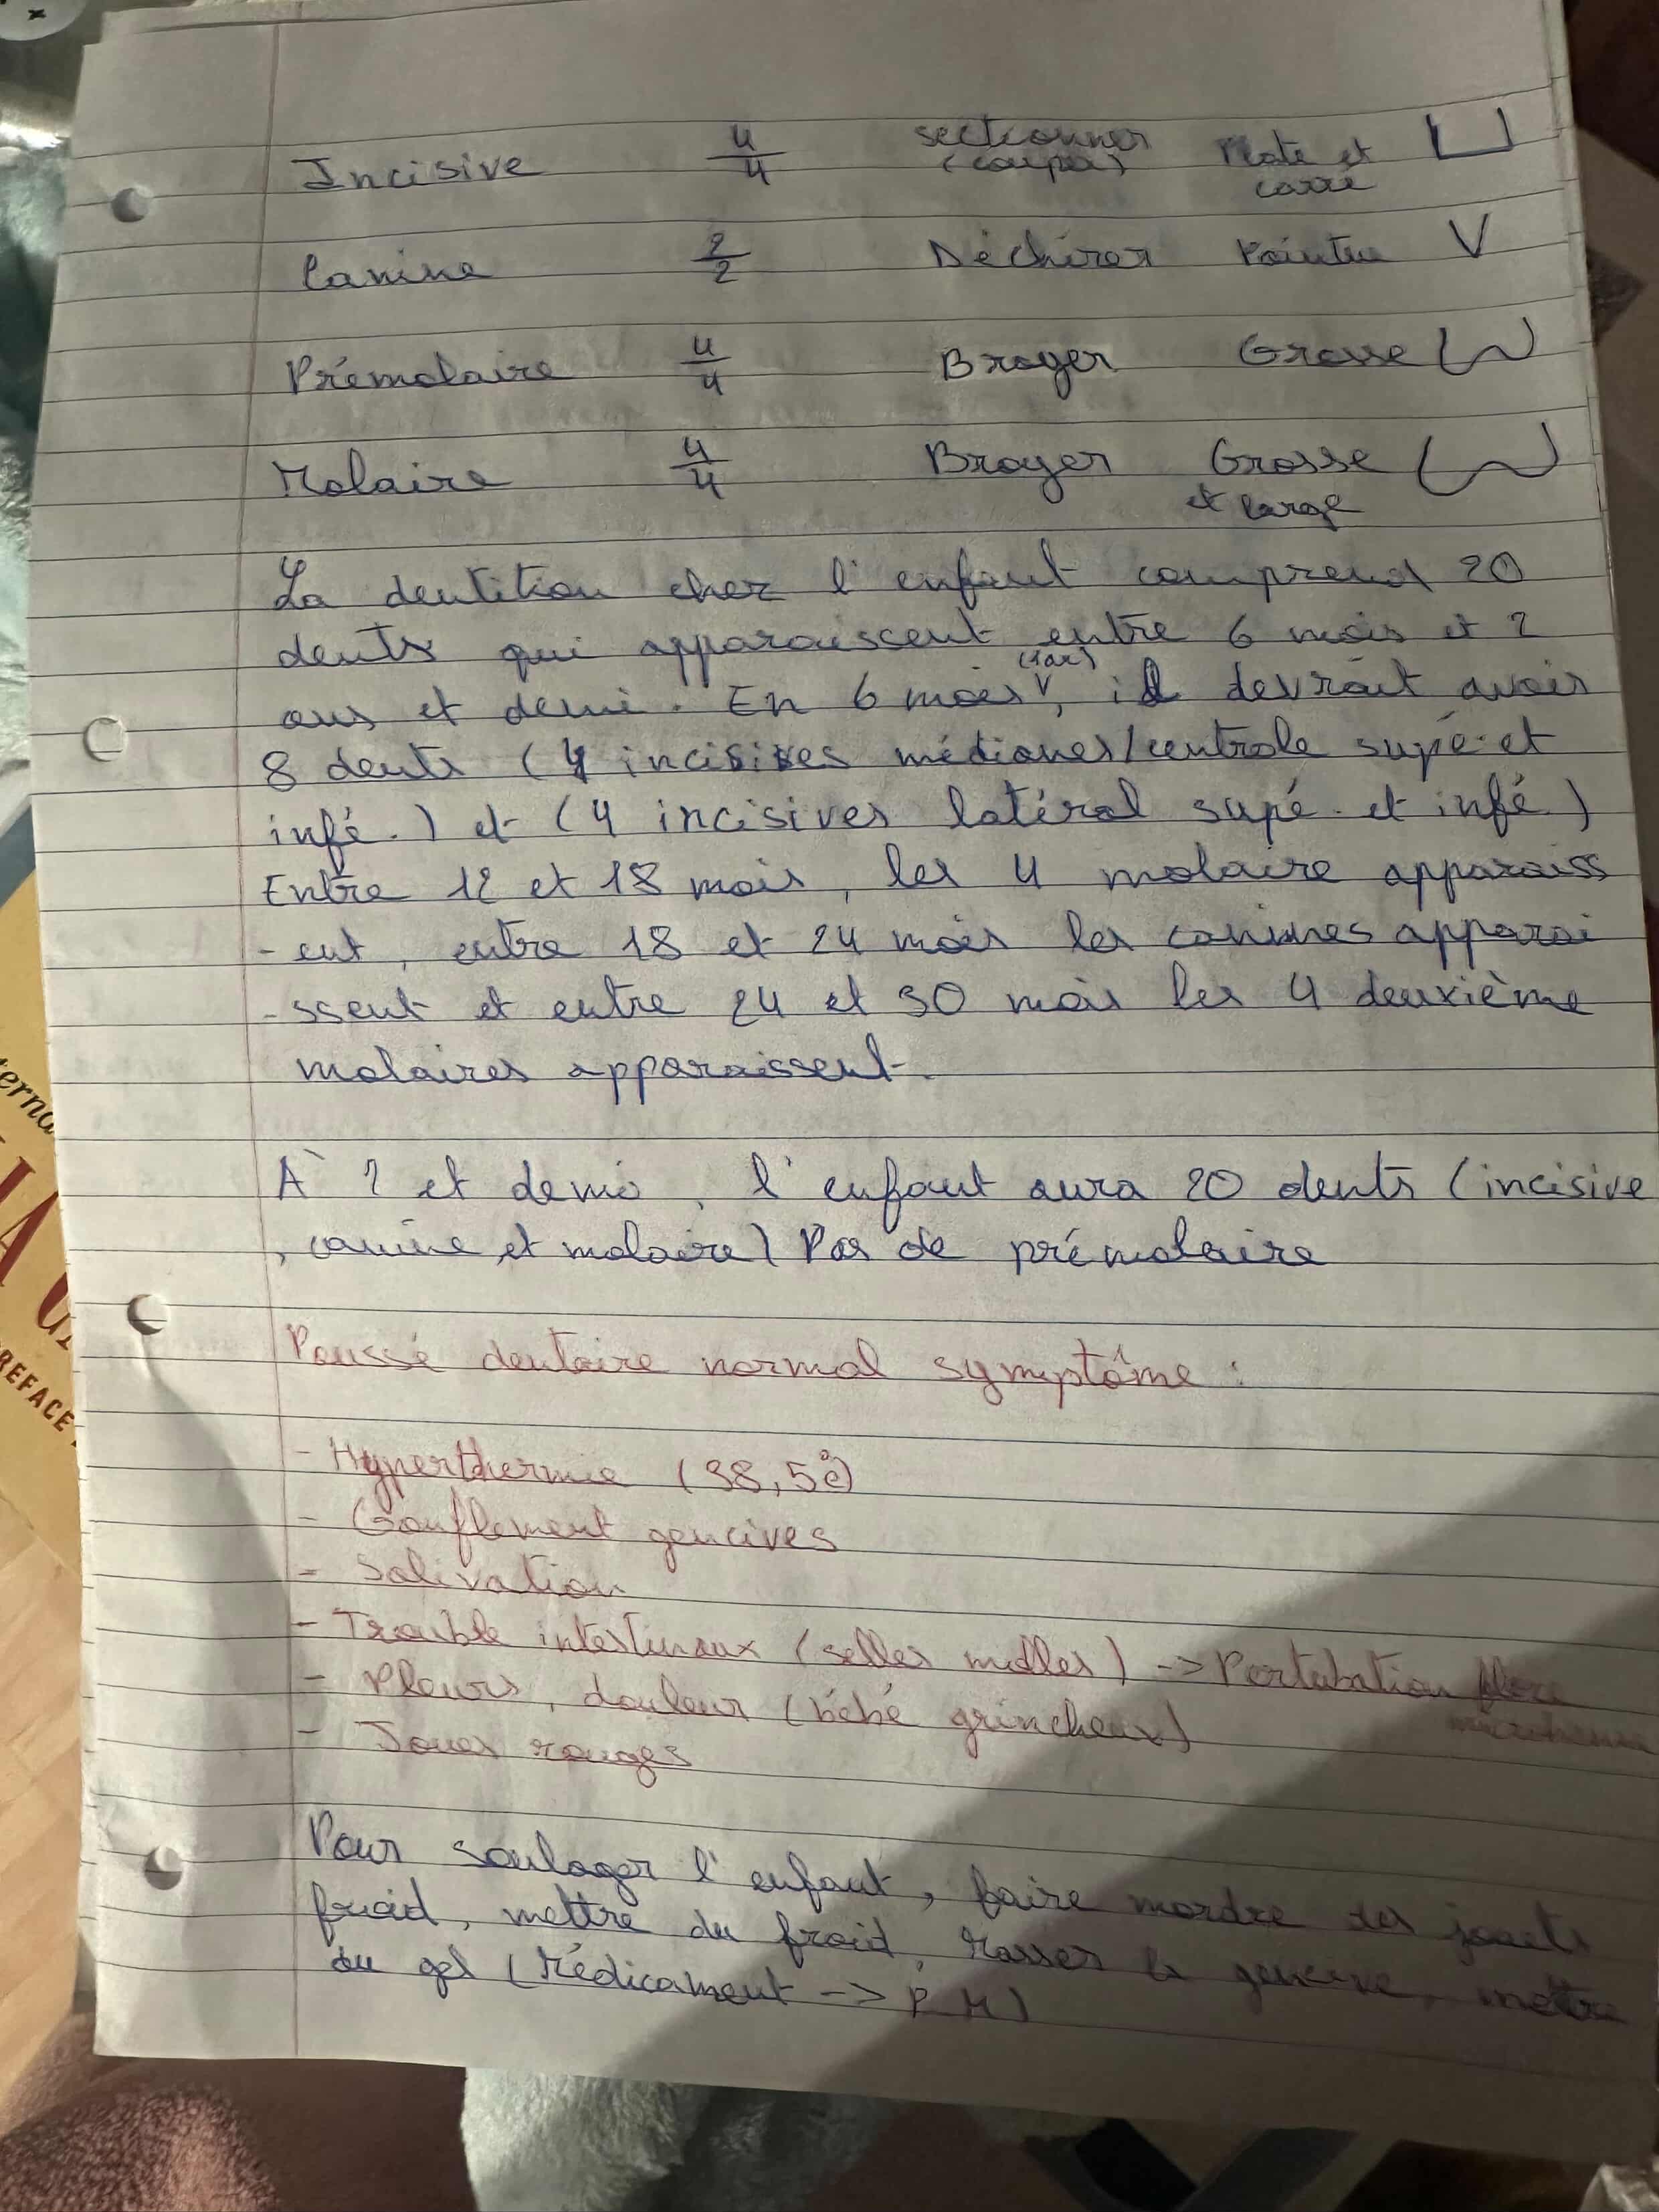 Incisive 4/4 sectionner Plate et
(couper) carré
Canine 2/2 Déchirer Pointue V
Prémolaire 4/4 Broyer Grosse
Molaire 4/4 Broyer Grosse
et large
La dentition chez l'enfant comprend 20
dents qui apparaiscent entre 6 mois et 2
ans et demi. En 6 mois, il devrait avoir
8 dents (4 incisives médianes/centrale supé. et
infé.) et (4 incisives latéral supé. et infé.)
Entre 12 et 18 mois, les 4 molaire apparaiss
-ent, entre 18 et 24 mois les canines apparai
-ssent et entre 24 et 30 mois les 4 deuxième
molaires apparaissent.
À 2 et demi, l'enfant aura 20 dents (incisive
, canine et molaire) Pas de prémolaire
Poussé dentaire normal symptôme :
- Hyperthermie (38,5°c)
- Gonflement gencives
- Salivation
- Trouble intestinaux (selles molles) -> Pertubation flore
- Pleurs, douleur (bébé grincheux)
- Joues rouges
Pour soulager l'enfant, faire mordre des jouets
froid, mettre du froid, masser la gencive, mettre
du gel (Médicament -> P.M)
terna
REFACE